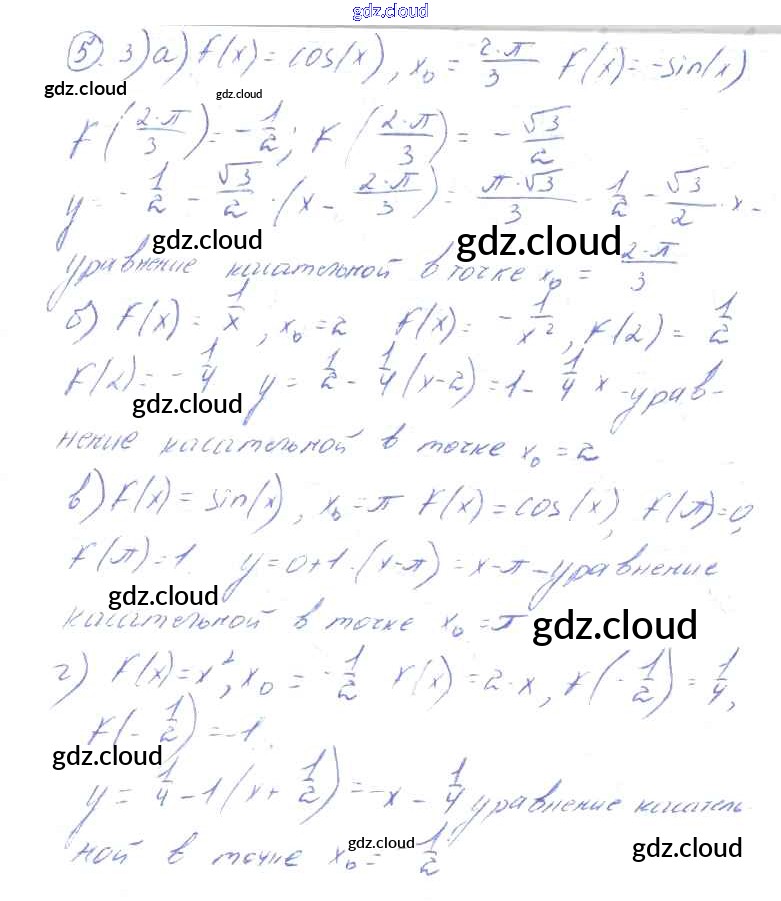 gdz.cloud
5. 3) а) f(x) = cos(x), x₀ = 2·π/3 f(x) = -sin(x)
gdz.cloud gdz.cloud
f(2·π/3) = -1/2; f(2·π/3) = -√3/2
y = -1/2 - √3/2 · (x - 2·π/3) = π·√3/3 - 1/2 - √3/2 · x -
gdz.cloud gdz.cloud
уравнение касательной в точке x₀ = 2·π/3
б) f(x) = 1/x, x₀ = 2 f(x) = -1/x², f(2) = 1/2
f(2) = -1/4 y = 1/2 - 1/4 (x-2) = 1 - 1/4 x - урав-
gdz.cloud
нение касательной в точке x₀ = 2
в) f(x) = sin(x), x₀ = π f(x) = cos(x), f(π) = 0,
f(π) = 1. y = 0+1·(x-π) = x-π - уравнение
gdz.cloud
касательной в точке x₀ = π
gdz.cloud
г) f(x) = x², x₀ = -1/2 f(x) = 2·x, f(-1/2) = 1/4,
f(-1/2) = -1.
gdz.cloud
y = 1/4 - 1(x + 1/2) = -x - 1/4 уравнение касатель-
ной в точке x₀ = -1/2
gdz.cloud gdz.cloud